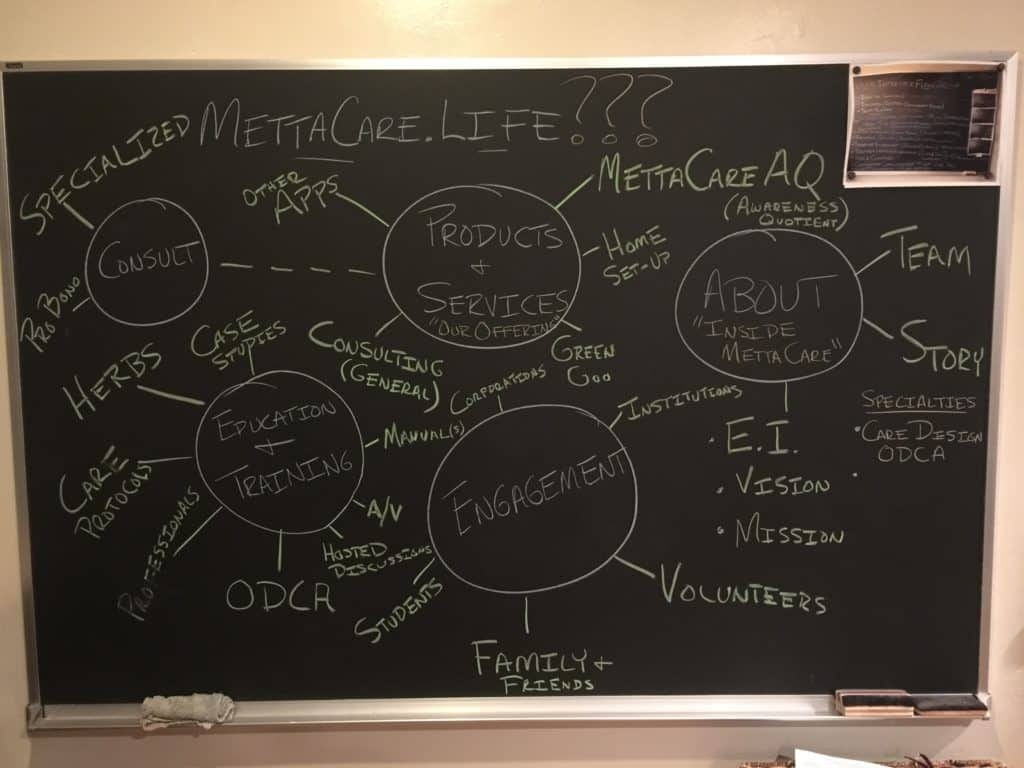 METTACARE.LIFE???
SPECIALIZED
CONSULT
PRO BONO
OTHER
APPS
PRODUCTS
+
SERVICES
"OUR OFFERING"
METTACARE AQ
(AWARENESS
QUOTIENT)
HOME
SET-UP
GREEN
GOO
CONSULTING
(GENERAL)
ABOUT
"INSIDE
METTACARE"
TEAM
STORY
• E.I.
• VISION
• MISSION
SPECIALTIES
• CARE DESIGN
ODCA
•
CASE
STUDIES
HERBS
EDUCATION
+
TRAINING
CARE
PROTOCOLS
PROFESSIONALS
ODCA
HOSTED
DISCUSSIONS
A/V
MANUAL(S)
CORPORATIONS
INSTITUTIONS
ENGAGEMENT
STUDENTS
FAMILY +
FRIENDS
VOLUNTEERS